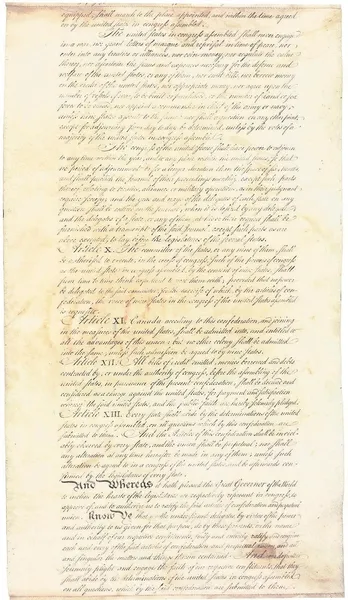 equipped, shall march to the place appointed, and within the time agreed
on by the united states in congress assembled.
The united states in congress assembled shall never engage
in a war, nor grant letters of marque and reprisal in time of peace, nor
enter into any treaties or alliances, nor coin money, nor regulate the value
thereof, nor ascertain the sums and expences necessary for the defence and
welfare of the united states, or any of them, nor emit bills, nor borrow money
on the credit of the united states, nor appropriate money, nor agree upon the
number of vessels of war, to be built or purchased, or the number of land or sea
forces to be raised, nor appoint a commander in chief of the army or navy,
unless nine states assent to the same: nor shall a question on any other point,
except for adjourning from day to day be determined, unless by the votes of a
majority of the united states in congress assembled.
The congress of the united states shall have power to adjourn
to any time within the year, and to any place within the united states, so that
no period of adjournment be for a longer duration than the space of six months,
and shall publish the Journal of their proceedings monthly, except such parts
thereof relating to treaties, alliances or military operations, as in their judgment
require secresy; and the yeas and nays of the delegates of each state on any
question shall be entered on the Journal, when it is desired by any delegate;
and the delegates of a state, or any of them, at his or their request shall be
furnished with a transcript of the said Journal, except such parts as are
above excepted, to lay before the legislatures of the several states.
Article X. The committee of the states, or any nine of them, shall
be authorised to execute, in the recess of congress, such of the powers of congress
as the united states in congress assembled, by the consent of nine states, shall
from time to time think expedient to vest them with; provided that no power
be delegated to the said committee, for the exercise of which, by the articles of con-
federation, the voice of nine states in the congress of the united states assembled
is requisite.
Article XI. Canada acceding to this confederation, and joining
in the measures of the united states, shall be admitted into, and entitled to
all the advantages of this union: but no other colony shall be admitted
into the same, unless such admission be agreed to by nine states.
Article XII. All bills of credit emitted, monies borrowed and debts
contracted by, or under the authority of congress, before the assembling of the
united states, in pursuance of the present confederation, shall be deemed and
considered as a charge against the united states, for payment and satisfaction
whereof the said united states, and the public faith are hereby solemnly pledged.
Article XIII. Every state shall abide by the determinations of the united
states in congress assembled, on all questions which by this confederation are
submitted to them. And the Articles of this confederation shall be inviol-
ably observed by every state, and the union shall be perpetual; nor shall
any alteration at any time hereafter be made in any of them; unless such
alteration be agreed to in a congress of the united states, and be afterwards con-
firmed by the legislatures of every state.
And Whereas it hath pleased the Great Governor of the World
to incline the hearts of the legislatures we respectively represent in congress, to
approve of, and to authorize us to ratify the said articles of confederation and perpetual
union. Know Ye that we the undersigned delegates, by virtue of the power
and authority to us given for that purpose, do by these presents, in the name
and in behalf of our respective constituents, fully and entirely ratify and confirm
each and every of the said articles of confederation and perpetual union, and all
and singular the matters and things therein contained: And we do further
solemnly plight and engage the faith of our respective constituents, that they
shall abide by the determinations of the united states in congress assembled,
on all questions, which by the said confederation are submitted to them.